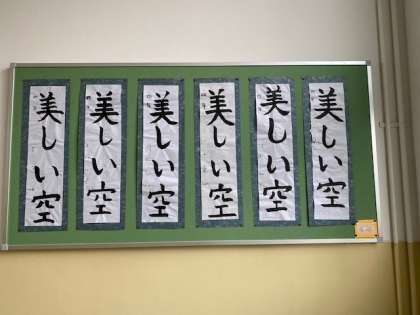 美しい空
美しい空
美しい空
美しい空
美しい空
美しい空